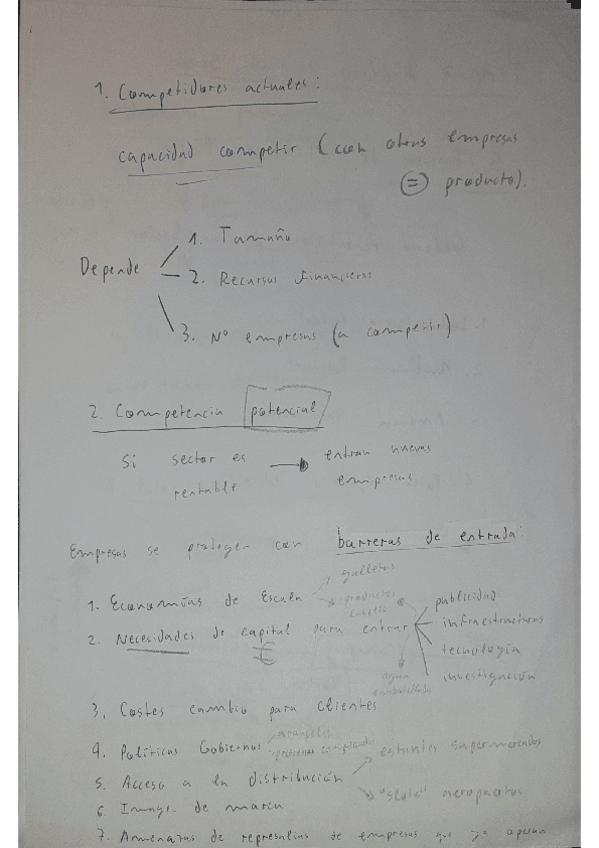 1. Competidores actuales:
capacidad competir (con otras empresas
(=) producto).
1. Tamaño
Depende
2. Recursos financieros
3. Nº empresas (a competir)
2. Competencia potencial
Si sector es → entran nuevas
rentable empresas
Empresas se protegen con barreras de entrada:
galletas
1. Economías de Escala → productos
cabello
publicidad
2. Necesidades de capital para entrar infraestructuras
€
tecnología
agua investigación
embotellada
3. Costes cambio para clientes
aranceles
4. Políticas Gobiernos
estantes supermercados
5. Acceso a la distribución
"slots" aeropuertos
6. Imagen de marca
7. Amenazas de represalias de empresas que ya operan